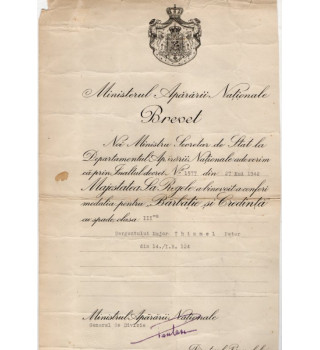 Ministerul Apărării Naționale
Brevet
Noi Ministru Secretar de Stat la
Departamentul Apărării Naționale adeverim
că prin Înaltul decret No 1571 din 27 Mai 1942
Majestatea Sa Regele a binevoit a conferi
medalia pentru „Bărbăție și Credință”
cu spade clasa III-a
Sergentului Major Thimmel Peter
din
Ministrul Apărării Naționale
General de Divizie